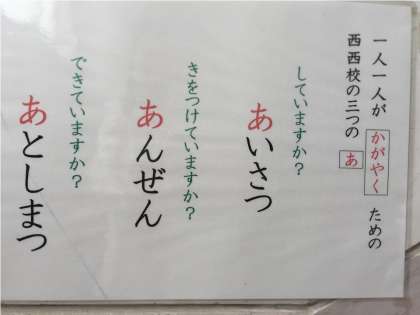 一人一人が かがやく ための
西西校の三つの あ
していますか?
あいさつ
きをつけていますか?
あんぜん
できていますか?
あとしまつ